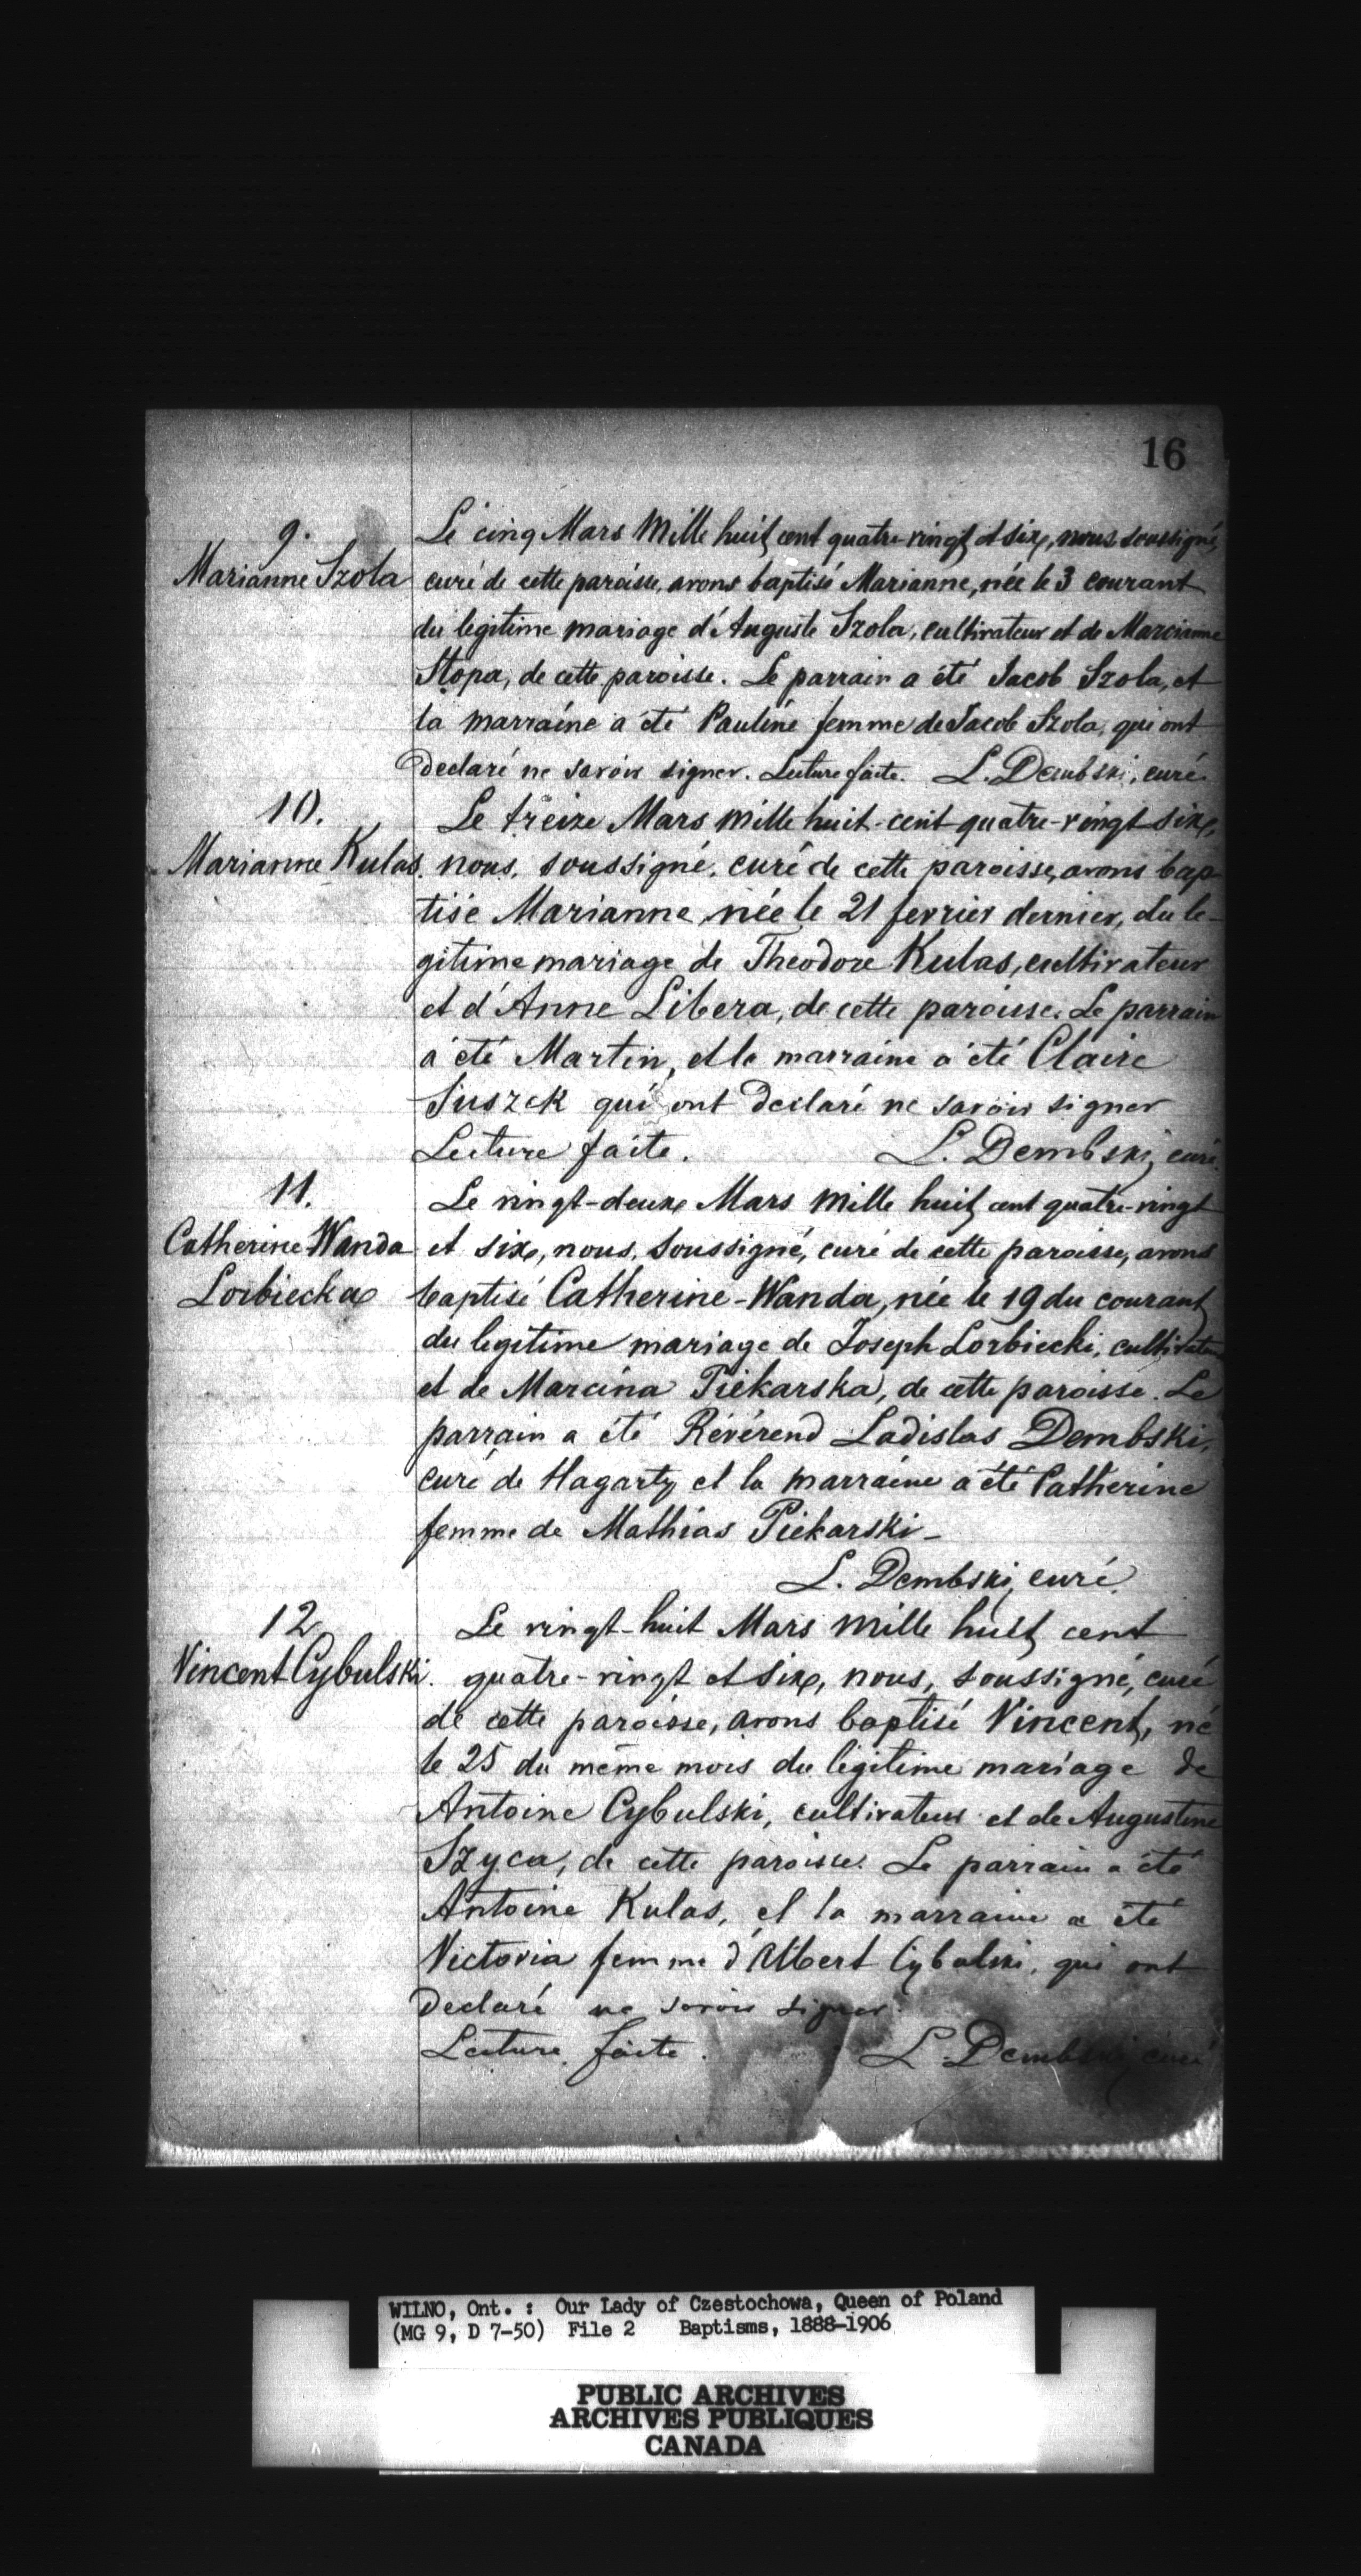 16
9.
Marianne Szola
Le cinq Mars Mille huit cent quatre-vingt et six, nous soussigné,
curé de cette paroisse, avons baptisé Marianne, née le 3 courant
du legitime mariage d'Auguste Szola, cultivateur et de Marcianne
Stopa, de cette paroisse. Le parrain a été Jacob Szola, et
la marraine a été Pauline femme de Jacob Szola, qui ont
declaré ne savoir signer. Lecture faite. L. Dembski, curé.
10.
Marianne Kulas.
Le treize Mars mille huit-cent quatre-vingt six,
nous, soussigné, curé de cette paroisse, avons bap-
tisé Marianne, née le 21 fevrier dernier, du le-
gitime mariage de Theodore Kulas, cultivateur
et d'Anne Libera, de cette paroisse. Le parrain
a été Martin, et la marraine a été Claire
Suszek qui ont declaré ne savoir signer
Lecture faite. L. Dembski, curé.
11.
Catherine Wanda
Lorbiecka
Le vingt-deux Mars mille huit cent quatre-vingt
et six, nous, soussigné, curé de cette paroisse, avons
baptisé Catherine-Wanda, née le 19 du courant
du legitime mariage de Joseph Lorbiecki, cultivateur
et de Marcina Piekarska, de cette paroisse. Le
parrain a été Révérend Ladislas Dembski,
curé de Hagarty et la marraine a été Catherine
femme de Mathias Piekarski-
L. Dembski, curé.
12
Vincent Cybulski.
Le vingt-huit Mars mille huit cent
quatre-vingt et six, nous, soussigné, curé
de cette paroisse, avons baptisé Vincent, né
le 25 du même mois du légitime mariage de
Antoine Cybulski, cultivateur et de Augustine
Szyca, de cette paroisse. Le parrain a été
Antoine Kulas, et la marraine a été
Victoria femme d'Albert Cybulski, qui ont
declaré ne savoir signer.
Lecture faite. L. Dembski, curé
WILNO, Ont. : Our Lady of Czestochowa, Queen of Poland
(MG 9, D 7-50) File 2 Baptisms, 1888-1906
PUBLIC ARCHIVES
ARCHIVES PUBLIQUES
CANADA